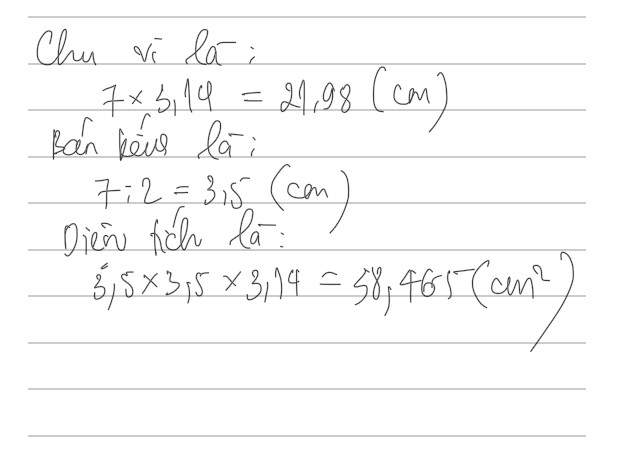 Chu vi là:
7 × 3,14 = 21,98 (cm)
Bán kính là:
7 : 2 = 3,5 (cm)
Diện tích là:
3,5 × 3,5 × 3,14 = 38,465 (cm²)